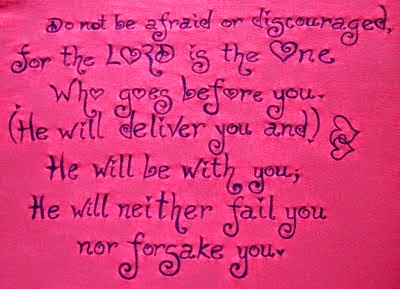 Do not be afraid or discouraged,
for the LORD is the One
Who goes before you.
(He will deliver you and)
He will be with you;
He will neither fail you
nor forsake you.